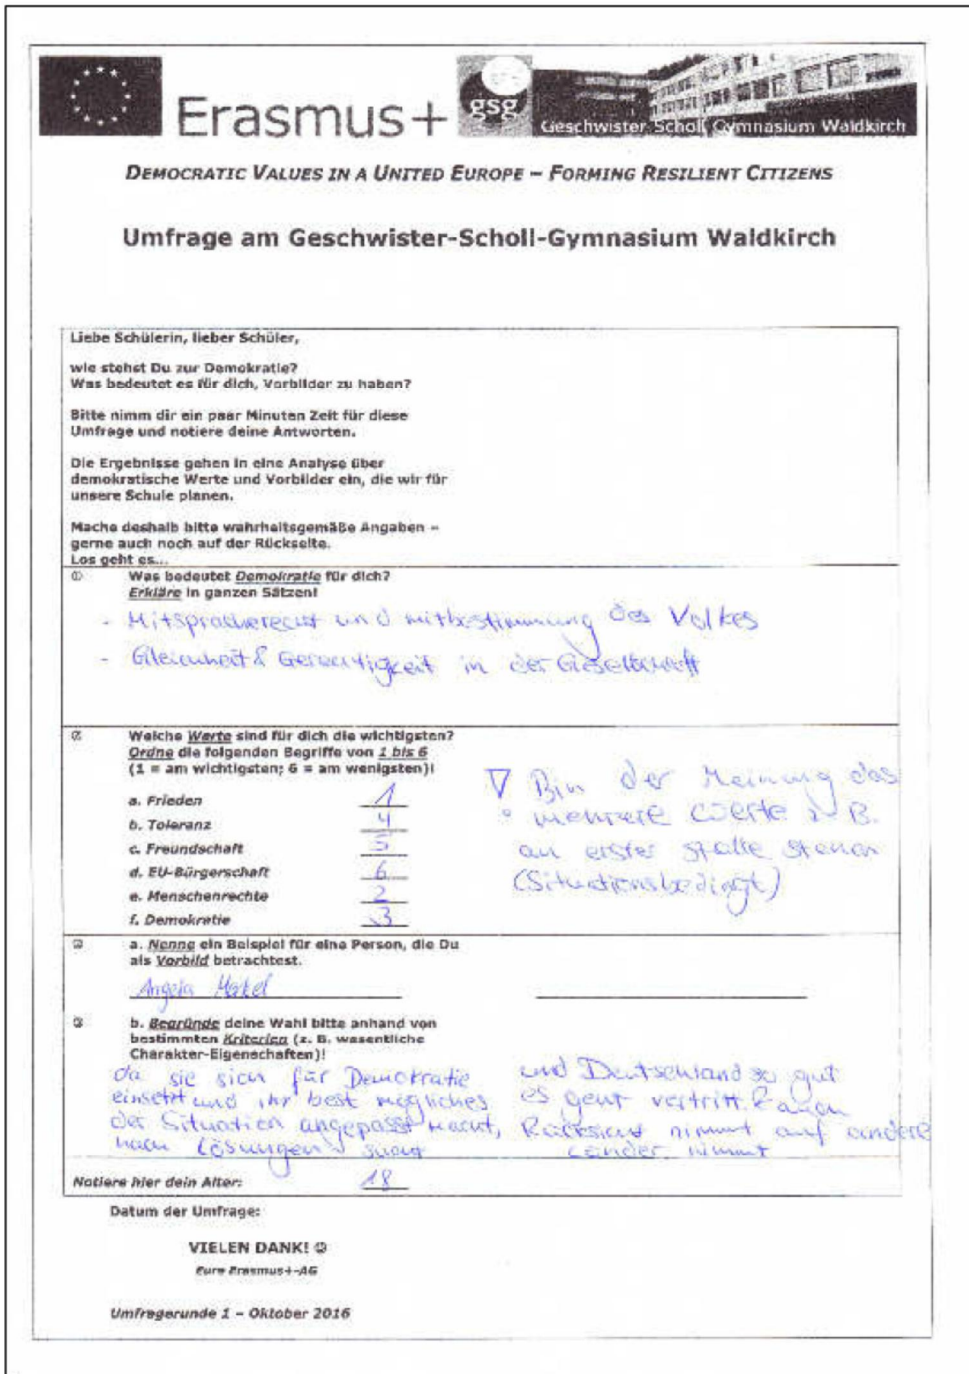 Erasmus+
gsg
Geschwister Scholl Gymnasium Waldkirch
DEMOCRATIC VALUES IN A UNITED EUROPE – FORMING RESILIENT CITIZENS
Umfrage am Geschwister-Scholl-Gymnasium Waldkirch
Liebe Schülerin, lieber Schüler,
wie stehst Du zur Demokratie?
Was bedeutet es für dich, Vorbilder zu haben?
Bitte nimm dir ein paar Minuten Zeit für diese
Umfrage und notiere deine Antworten.
Die Ergebnisse gehen in eine Analyse über
demokratische Werte und Vorbilder ein, die wir für
unsere Schule planen.
Mache deshalb bitte wahrheitsgemäße Angaben –
gerne auch noch auf der Rückseite.
Los geht es...
① Was bedeutet Demokratie für dich?
Erkläre in ganzen Sätzen!
- Mitspracherecht und mitbestimmung des Volkes
- Gleichheit & Gerechtigkeit in der Gesellschaft
② Welche Werte sind für dich die wichtigsten?
Ordne die folgenden Begriffe von 1 bis 6
(1 = am wichtigsten; 6 = am wenigsten)!
a. Frieden 1
b. Toleranz 4
c. Freundschaft 5
d. EU-Bürgerschaft 6
e. Menschenrechte 2
f. Demokratie 3
Bin der Meinung das
mehrere Werte z.B.
an erster stelle stehen
(Situationsbedingt)
③ a. Nenne ein Beispiel für eine Person, die Du
als Vorbild betrachtest.
Angela Merkel
③ b. Begründe deine Wahl bitte anhand von
bestimmten Kriterien (z. B. wesentliche
Charakter-Eigenschaften)!
da sie sich für Demokratie
einsetzt und ihr best mögliches
der Situation angepasst macht,
nach Lösungen sucht
und Deutschland so gut
es geht vertritt.
Rücksicht nimmt auf andere
Länder nimmt
Notiere hier dein Alter: 18
Datum der Umfrage:
VIELEN DANK! ☺
Eure Erasmus+-AG
Umfragerunde 1 – Oktober 2016